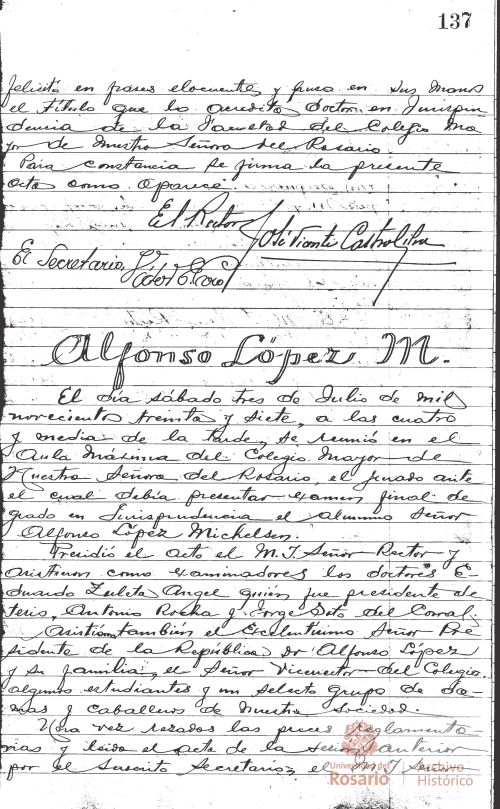 137
felicitó en frases elocuentes y puso en sus manos
el título que lo acredita doctor en Jurispru
dencia de la Facultad del Colegio Ma
yor de Nuestra Señora del Rosario.
Para constancia se firma la presente
acta como aparece.
El Rector, José Vicente Castro Silva
El Secretario,
Alfonso López M.
El día sábado tres de Julio de mil
novecientos treinta y siete, a las cuatro
y media de la tarde, se reunió en el
Aula Máxima del Colegio Mayor de
Nuestra Señora del Rosario, el jurado ante
el cual debía presentar examen final de
grado en Jurisprudencia el alumno Señor
Alfonso López Michelsen.
Presidió el acto el M. I. Señor Rector y
asistieron como examinadores los doctores E-
duardo Zuleta Angel quien fue presidente de
tesis, Antonio Rocha y Jorge Soto del Corral.
Asistieron también el Excelentísimo Señor Pre
sidente de la República dr Alfonso López
y su familia, el Señor Vicerrector del Colegio,
algunos estudiantes y un selecto grupo de da-
mas y caballeros de nuestra sociedad.
Una vez rezadas las preces reglamenta-
rias y leída el acta de la sesión anterior
por el suscrito Secretario, el M. I. Señor
Universidad del
Rosario
Archivo
Histórico